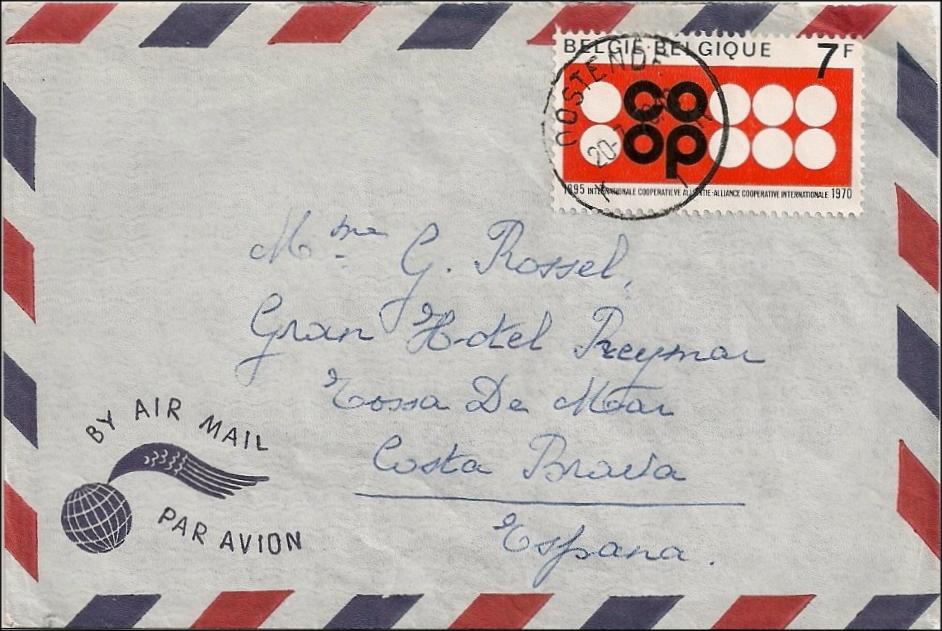 BELGIE-BELGIQUE 7F
OOSTENDE
20-7
co
op
1895 INTERNATIONALE COOPERATIEVE ALLIANTIE-ALLIANCE COOPERATIVE INTERNATIONALE 1970
Mme G. Rossel,
Gran Hotel Reymar
Tossa De Mar
Costa Brava
España.
BY AIR MAIL
PAR AVION